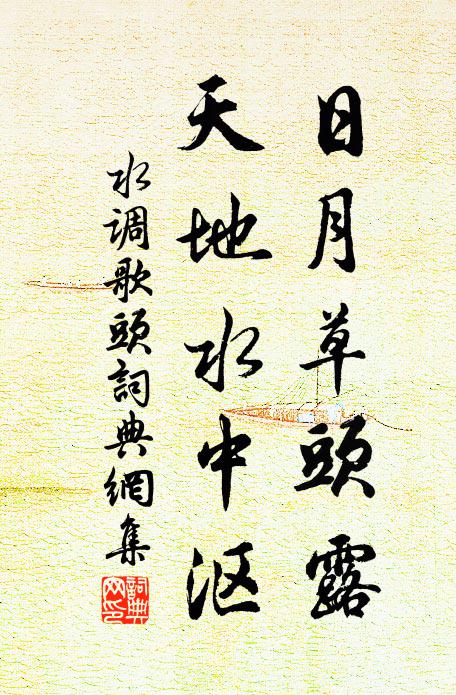 日月草頭露
天地水中沤
水调歌頭詞典網集
詞典
网印